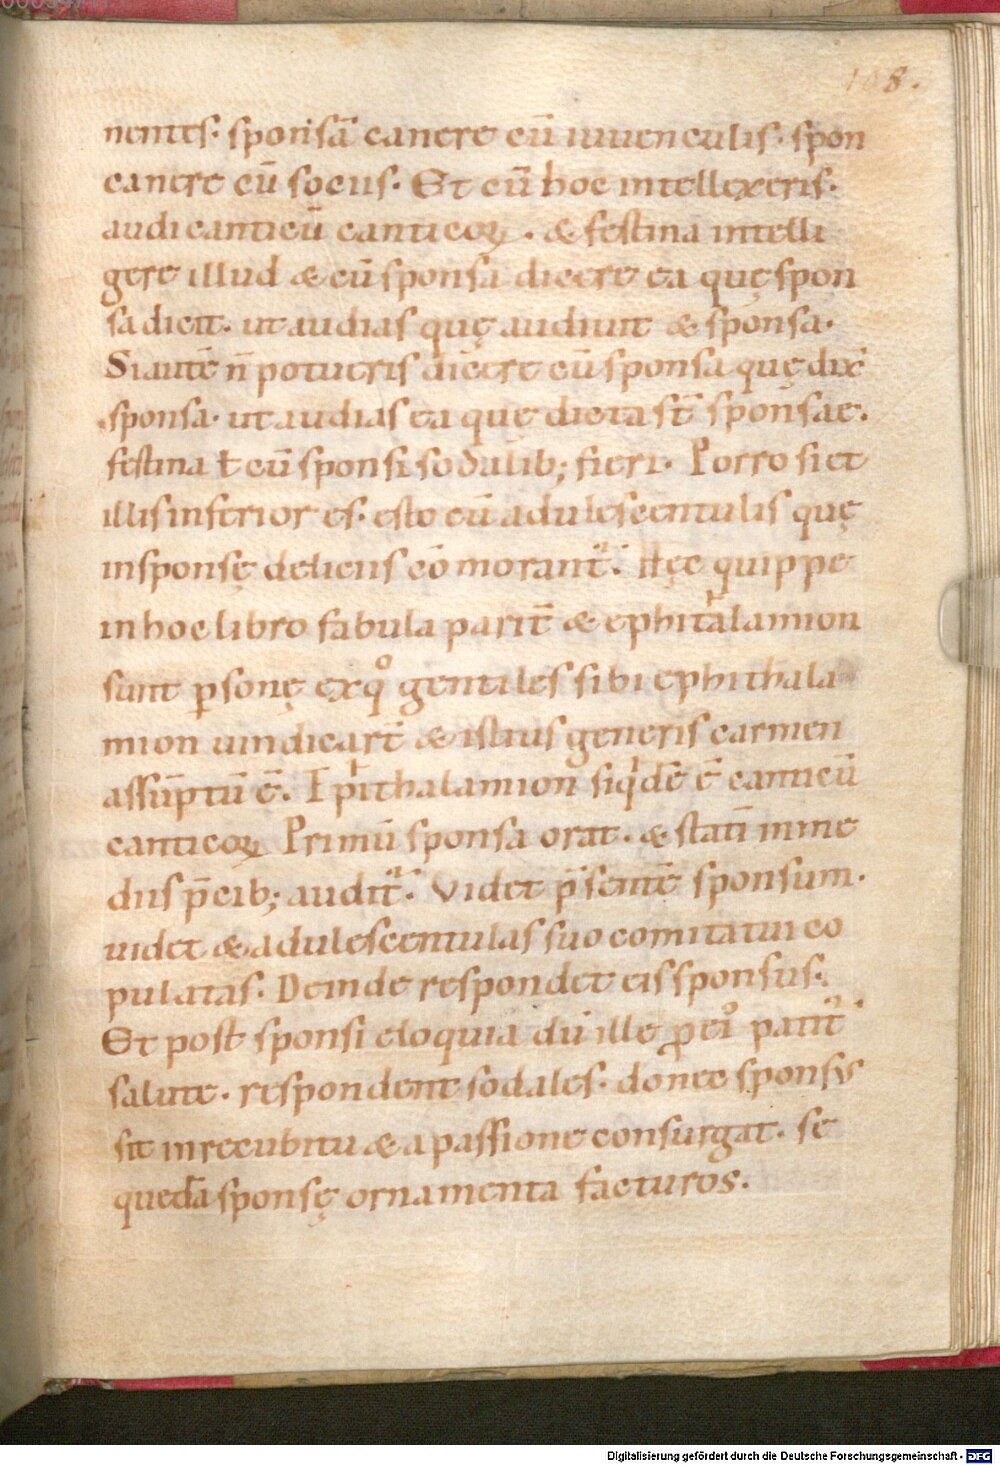 108.
nentes· sponsā canere cū iuuenculis· spon
canere cū sociis· Et cū hoc intellexeris·
audi canticū canticoꝝ· & festina intelli
gere illud & cū sponsa dicere ea quę spon
sa dicit· ut audias quę audiuit & sponsa·
Si autē n̄ potueris dicere cū sponsa quę dix̄
sponsa· ut audias ea quę dicta st̄ sponsae·
festina ł cū sponsi sodalib; fieri· Porro si et
illis inferior es· esto cū adulescentulis quę
in sponsę deliciis cō morant᷑· Hęc quippe
in hoc libro fabula parit̄ & ephitalamion
sunt ꝑsonę ex qͦ gentiles sibi ephithala
mion uindicar̄t & istius generis carmen
assūptū ē· Epithalamion siqͥdē ē canticū
canticoꝝ Primū sponsa orat· & statī in me
diis p̄cib; audit᷑· Videt p̄sentē sponsum·
uidet & adulescentulas suo comitatui co
pulatas· Deinde respondet eis sponsus·
Et post sponsi eloquia dū ille ꝓ eiꝰ patit᷑
salute· respondent sodales· donec sponsus
sit in recubitu & a passione consurgat· se
quedā sponsę ornamenta facturos·
Digitalisierung gefördert durch die Deutsche Forschungsgemeinschaft - DFG